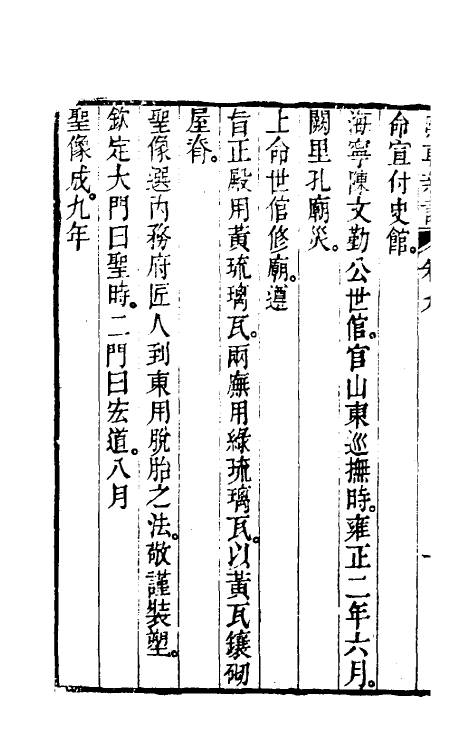 命宣付史館。
海寧陳文勤公世倌。官山東巡撫時。雍正二年六月。
闕里孔廟災。
上命世倌修廟。遵
旨正殿用黃琉璃瓦。兩廡用綠琉璃瓦。以黃瓦鑲砌
屋脊。
聖像選內務府匠人到東用脫胎之法。敬謹裝塑。
欽定大門曰聖時。二門曰宏道。八月
聖像成。九年